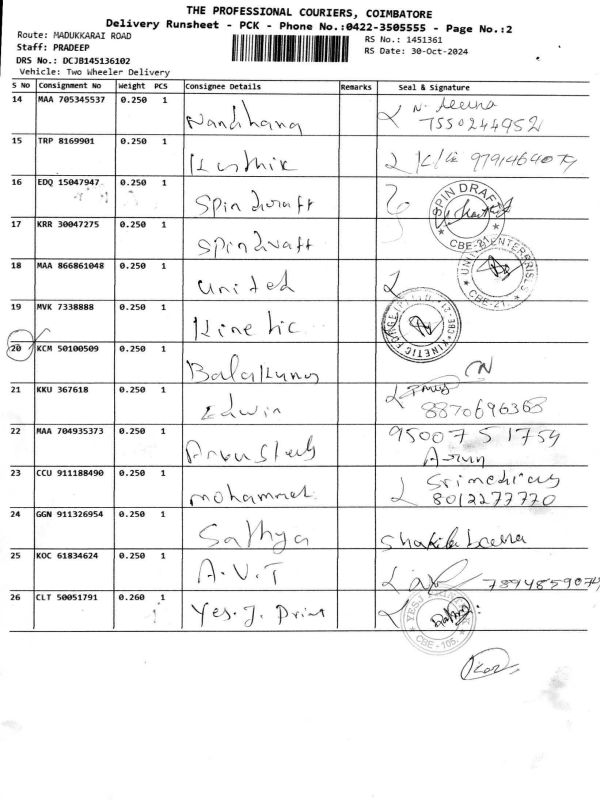 THE PROFESSIONAL COURIERS, COIMBATORE
Delivery Runsheet - PCK - Phone No.:0422-3505555 - Page No.:2
Route: MADUKKARAI ROAD
RS No.: 1451361
Staff: PRADEEP
RS Date: 30-Oct-2024
DRS No.: DCJB145136102
Vehicle: Two Wheeler Delivery
S No Consignment No Weight PCS Consignee Details Remarks Seal & Signature
14 MAA 705345537 0.250 1 Nandhana N. Leena
7550244952
15 TRP 8169901 0.250 1 Karthik
16 EDQ 15047947 0.250 1 Spin draft SPIN DRAFT CBE-21
17 KRR 30047275 0.250 1 Spin draft
18 MAA 866861048 0.250 1 United UNITED ENTERPRISES CBE-21
19 MVK 7338888 0.250 1 Kinetic KINETIC CBE-21
20 KCM 50100509 0.250 1 Balakumar
21 KKU 367618 0.250 1 Edwin 8870696368
22 MAA 704935373 0.250 1 9500751754
Arun
23 CCU 911188490 0.250 1 mohammed Srimedicals
8012277770
24 GGN 911326954 0.250 1 Sathya
25 KOC 61834624 0.250 1 A.V.T
26 CLT 50051791 0.260 1 Yes. J. Print YESJ PRINT CBE-105